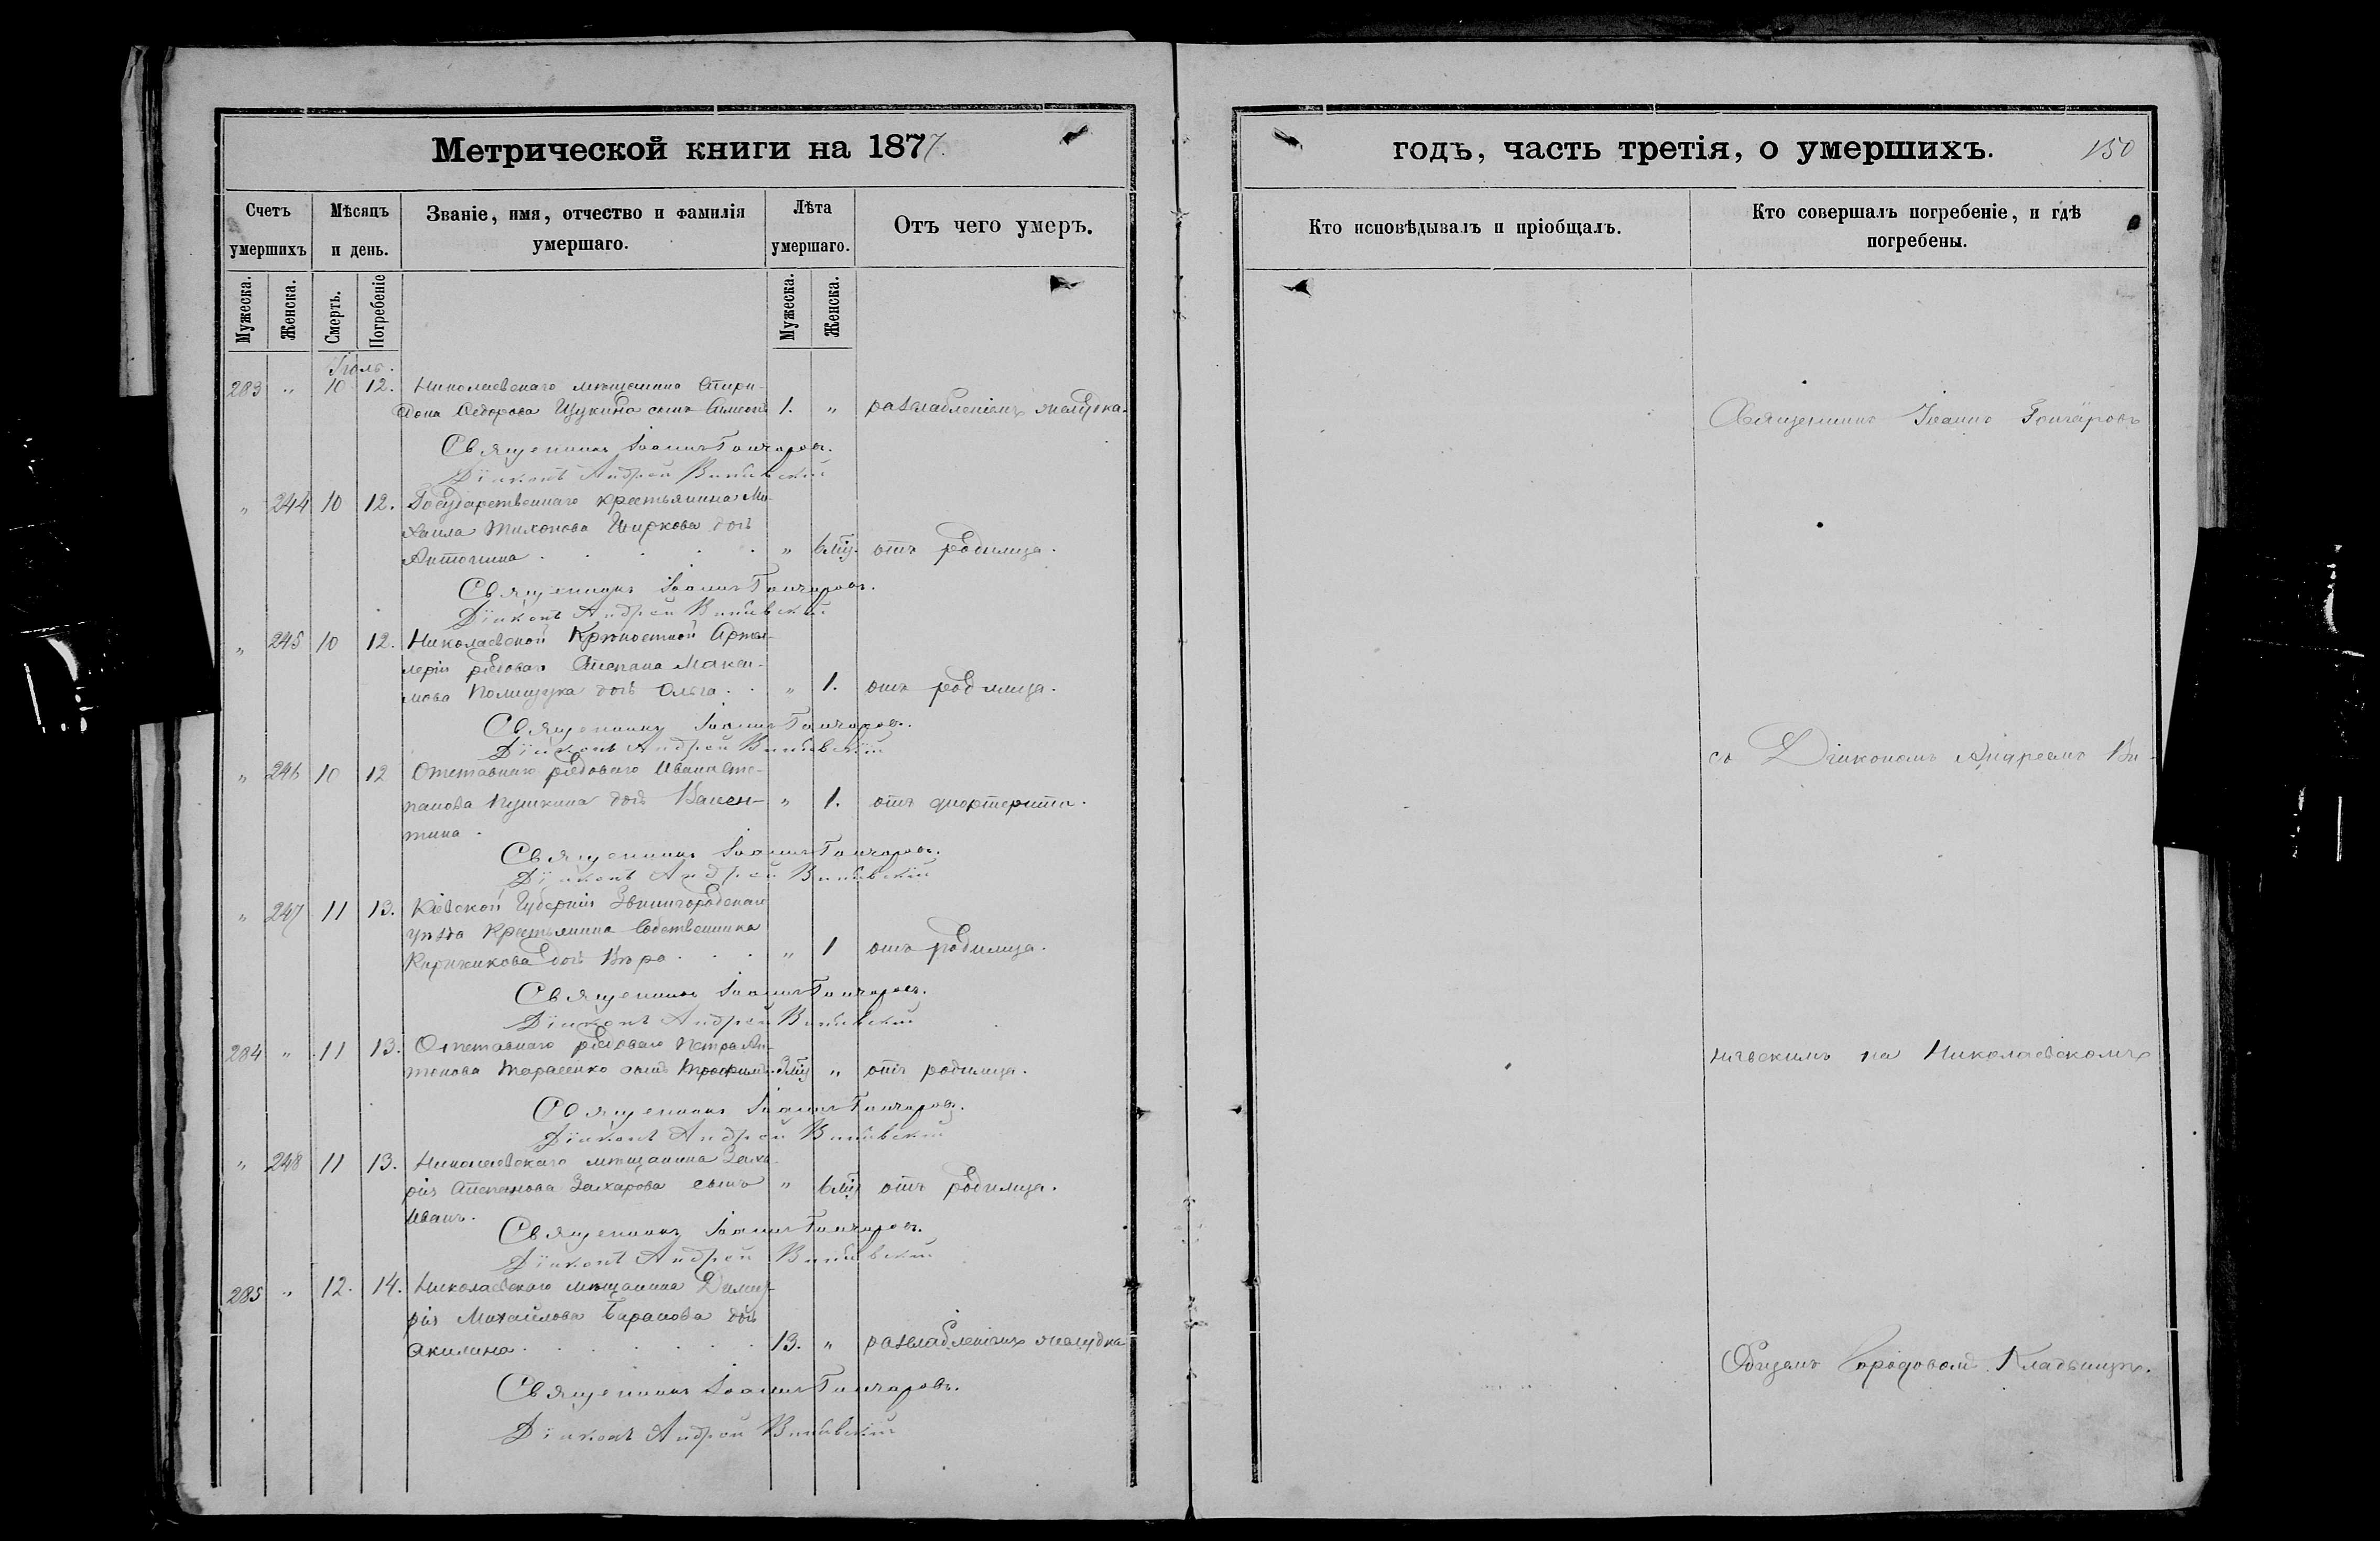 Метрической книги на 1877.
Счетъ умершихъ
Мѣсяцъ и день.
Званіе, имя, отчество и фамилія умершаго.
Лѣта умершаго.
Отъ чего умеръ.
Мужеска.
Женска.
Смерть.
Погребеніе
Мужеска.
Женска.
Іюль.
283 " 10 12. Николаевскаго мѣщанина Спири-
дона Ѳедорова Щукина сынъ 1. " разслабленіемъ желудка.
Священникъ Іоаннъ Гончаровъ.
Діаконъ Андрей
" 244 10 12. Государственнаго крестьянина Ми-
хаила Тихонова Ширкова дочь
Антонина . . . . . " 6 мѣц. отъ родимца.
Священникъ Іоаннъ Гончаровъ.
Діаконъ Андрей
" 245 10 12. Николаевской Крѣпостной Артил-
леріи рядоваго Степана Макси-
мова Полищука дочь Ольга . . " 1. отъ родимца.
Священникъ Іоаннъ Гончаровъ.
Діаконъ Андрей
" 246 10 12 Отставнаго рядоваго Ивана Сте-
панова Пушкина дочь Вален- " 1. отъ дифтерита.
тина .
Священникъ Іоаннъ Гончаровъ.
Діаконъ Андрей
" 247 11 13. Кіевской Губерніи Звенигородскаго
уѣзда Крестьянина Собственника
Киричикова дочь Вѣра . . . " 1 отъ родимца.
Священникъ Іоаннъ Гончаровъ.
Діаконъ Андрей
284 " 11 13. Отставнаго рядоваго Петра Ан-
тонова Тарасенко сынъ Трофимъ 3 мѣц " отъ родимца.
Священникъ Іоаннъ Гончаровъ.
Діаконъ Андрей
" 248 11 13. Николаевскаго мѣщанина Заха-
рія Степанова Захарова сынъ " 6 мѣц отъ родимца.
Иванъ.
Священникъ Іоаннъ Гончаровъ.
Діаконъ Андрей
285 " 12. 14. Николаевскаго мѣщанина Димит-
рія Михайлова Баранова дочь
Акилина . . . . . . 13. " разслабленіемъ желудка
Священникъ Іоаннъ Гончаровъ.
Діаконъ Андрей
годъ, часть третія, о умершихъ.
150
Кто исповѣдывалъ и пріобщалъ.
Кто совершалъ погребеніе, и гдѣ
погребены.
Священникъ Іоаннъ Гончаровъ
съ Діакономъ Андреемъ
на Николаевскомъ
Общемъ Городовомъ Кладбищѣ.